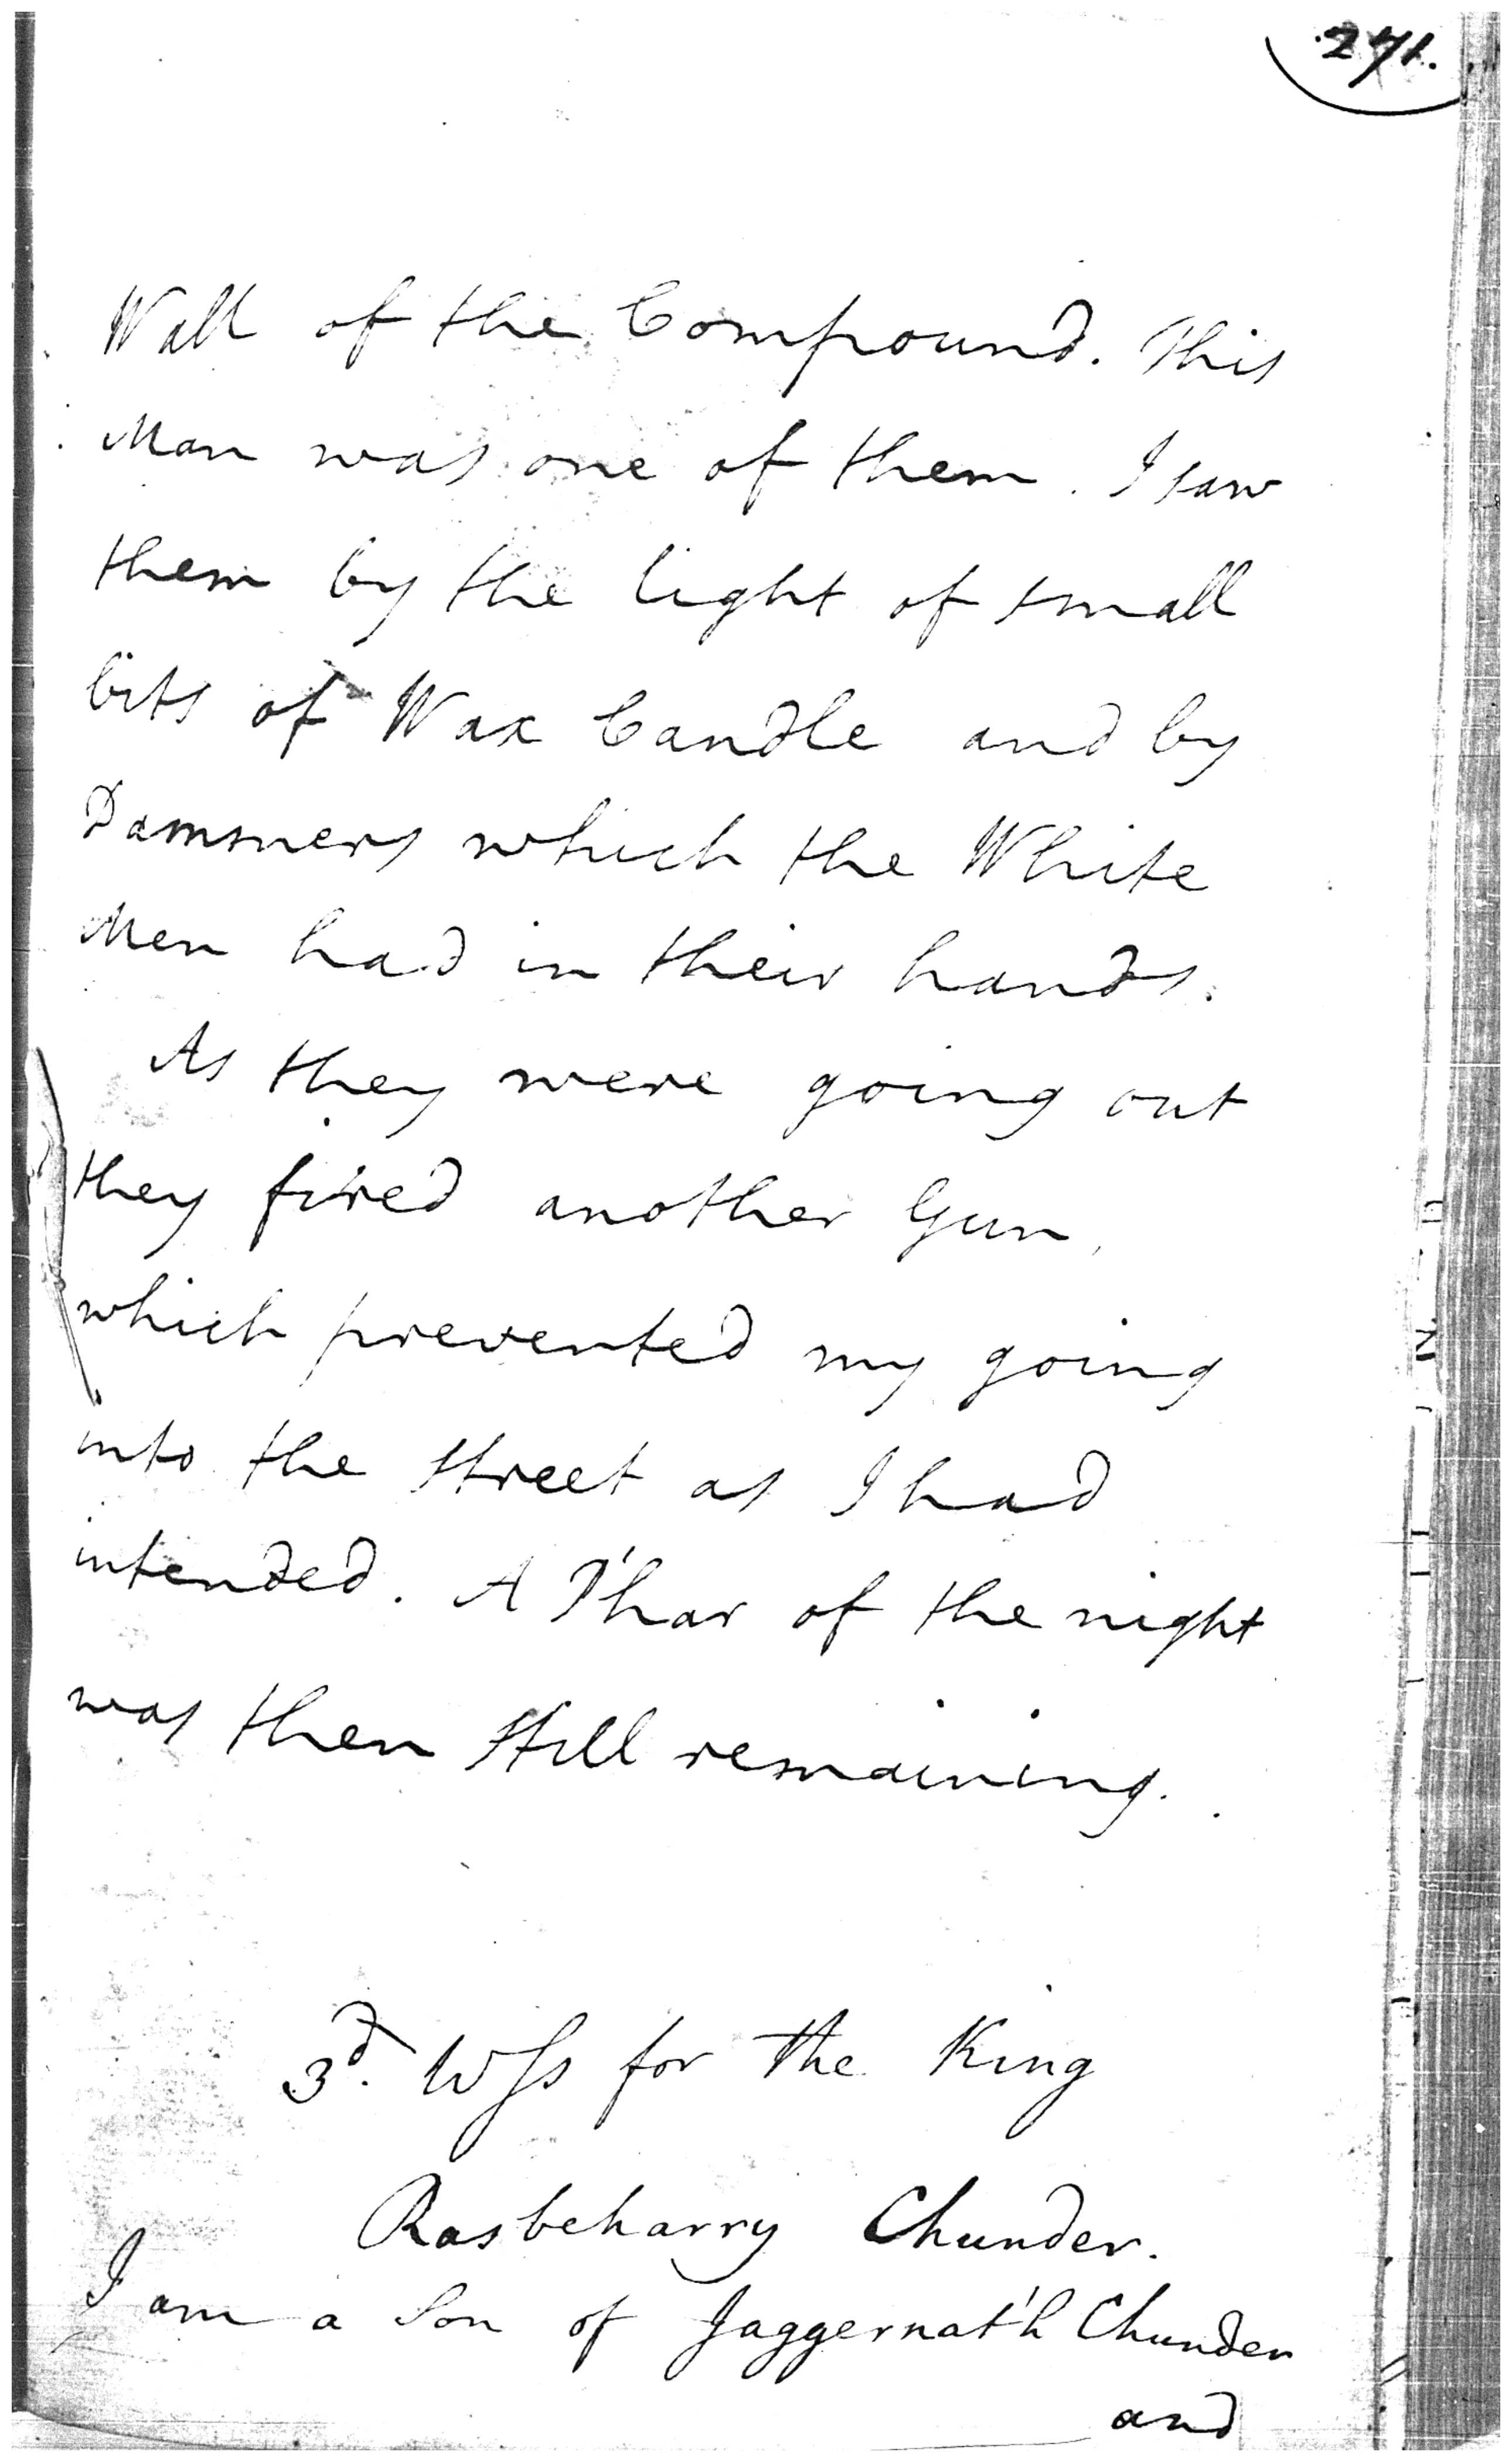 271.
Wall of the Compound. This
Man was one of them. I saw
them by the light of small
bits of Wax Candle and by
Dammers which the White
Men had in their hands.
As they were going out
they fired another Gun,
which prevented my going
into the street as I had
intended. A P'har of the night
was then still remaining.
3d. Wss for the King
Rasbeharry Chunder.
I am a Son of Jaggernat'h Chunder
and